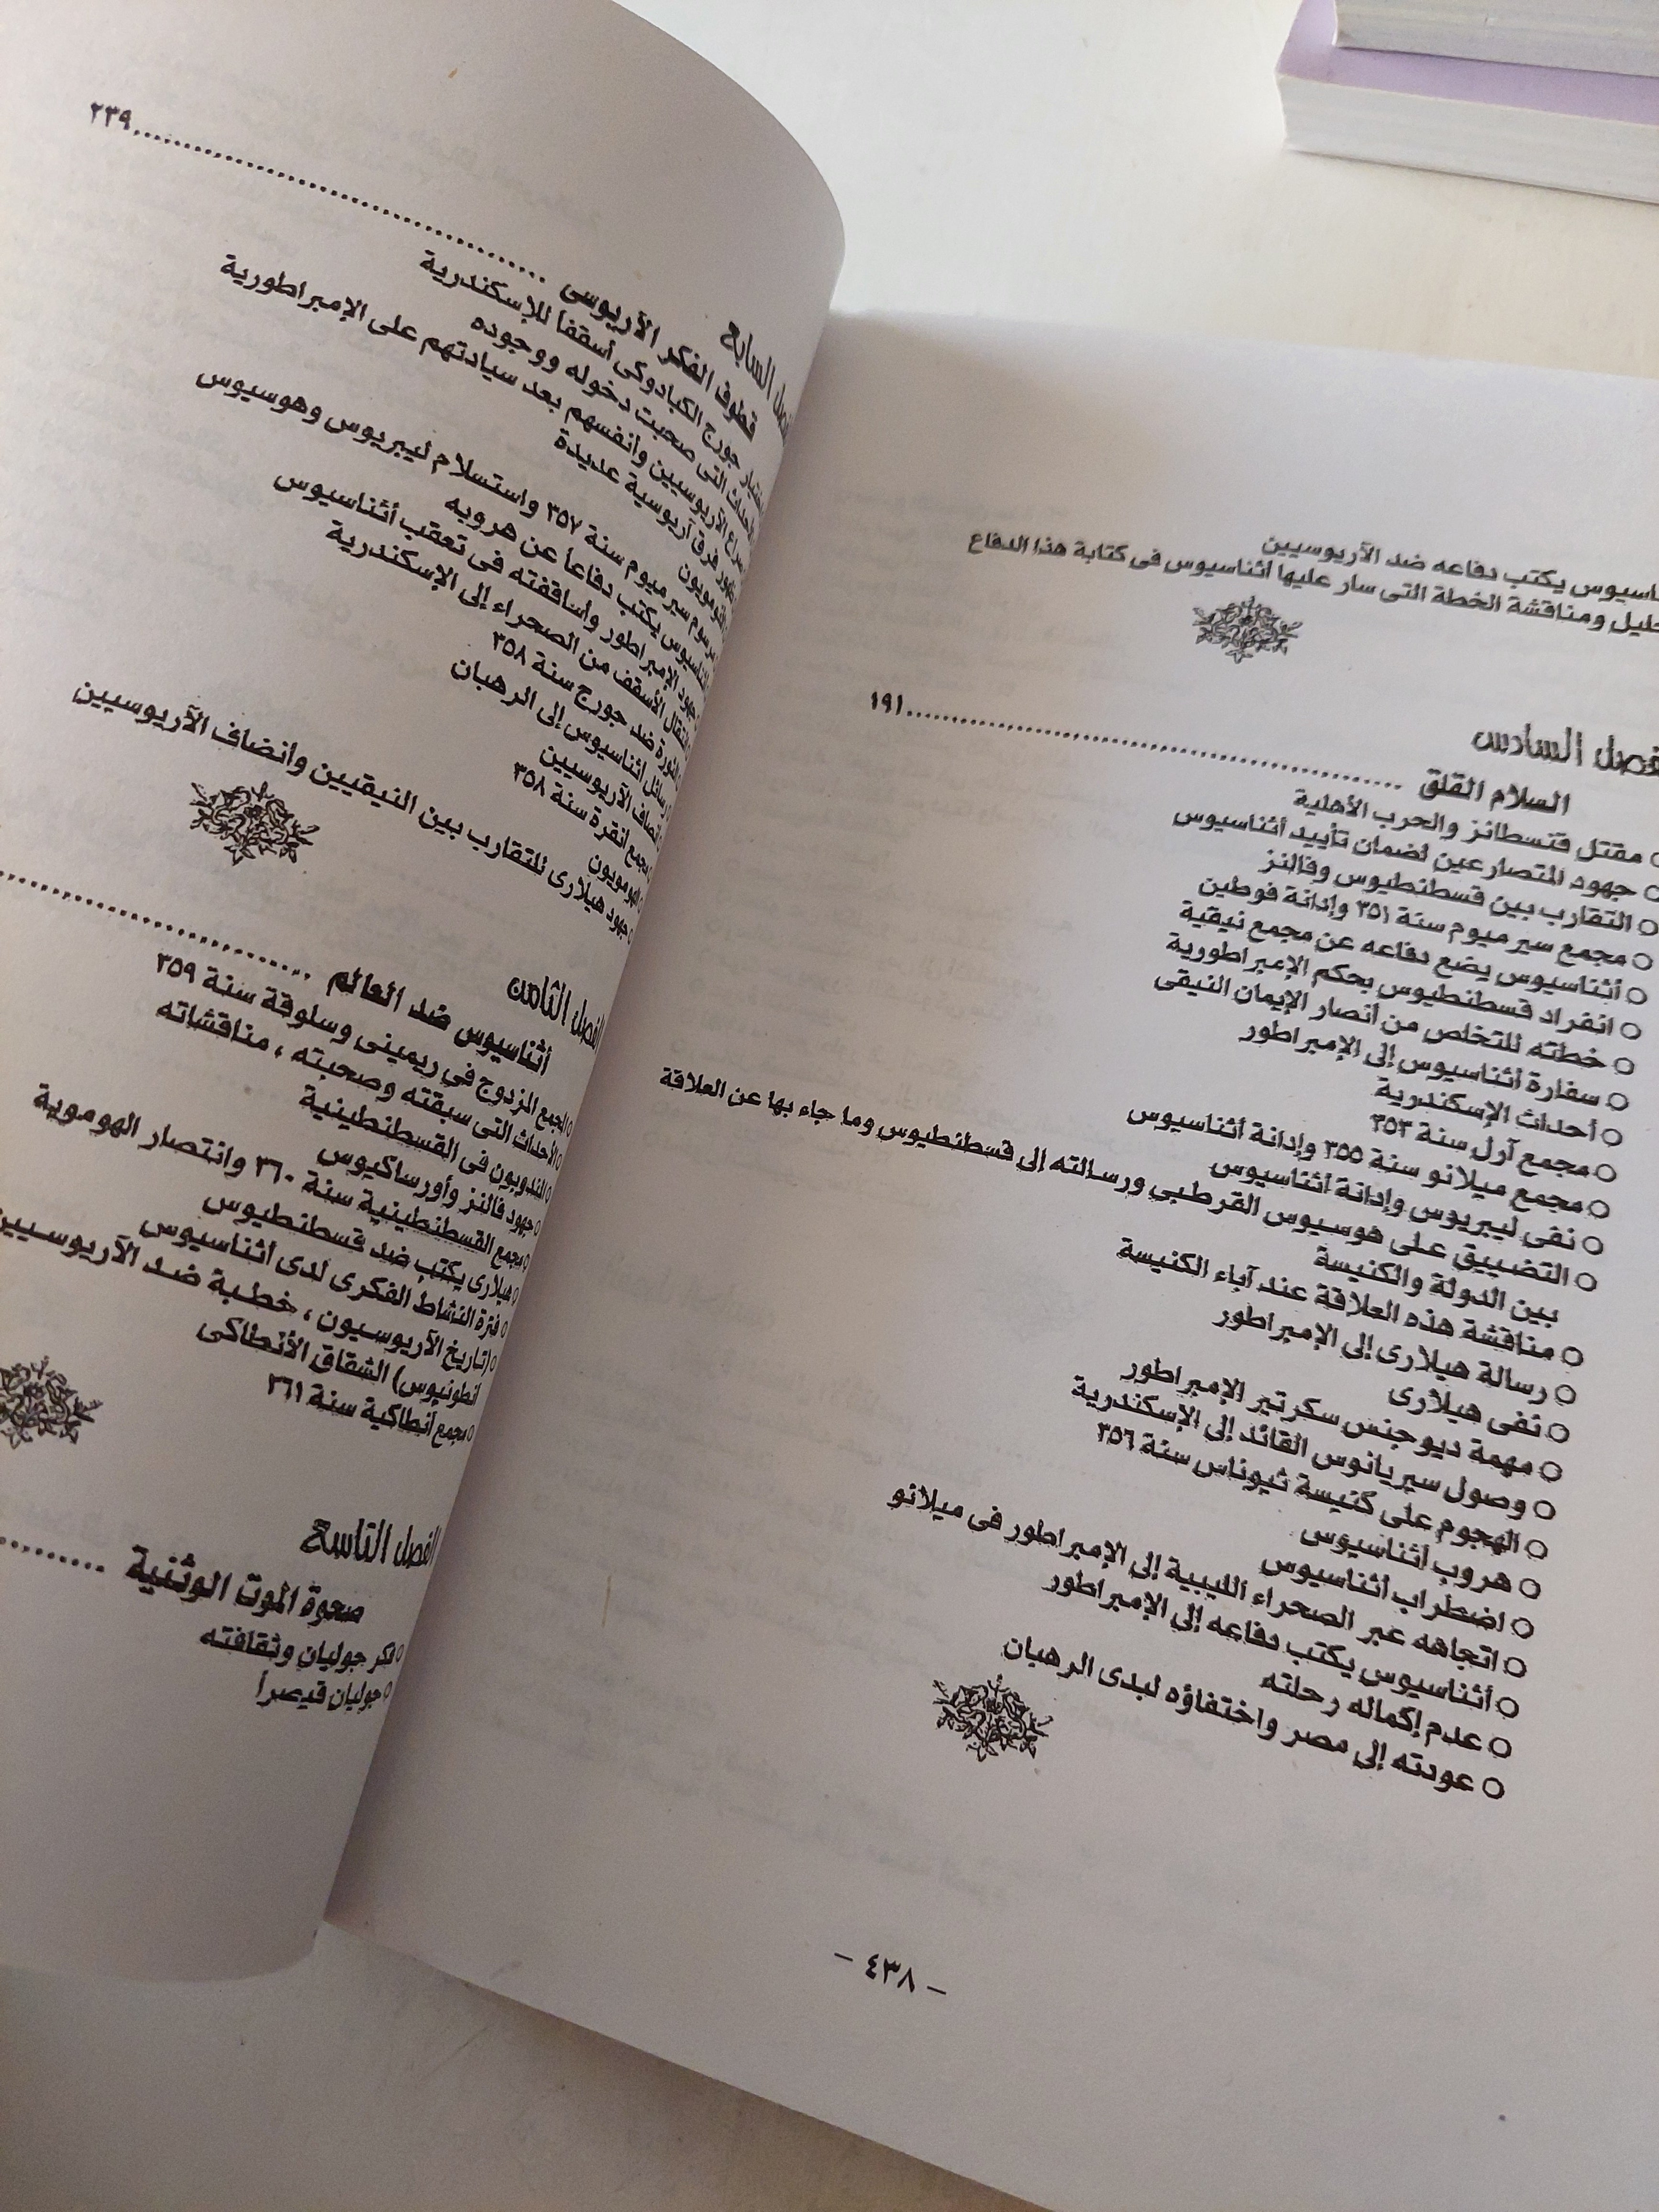 يكتب دفاعه ضد الآريوسيين
ومناقشة الخطة التى سار عليها أثناسيوس فى كتابة هذا الدفاع
السادس
السلام القلق ..................١٩١
○ مقتل قنسطانز والحرب الأهلية
○ جهود المتصارعين لضمان تأييد أثناسيوس
○ التقارب بين قسطنطيوس وفالنز
○ مجمع سيرميوم سنة ٣٥١ وإدانة فوطين
○ أثناسيوس يضع دفاعه عن مجمع نيقية
○ انفراد قسطنطيوس بحكم الإمبراطورية
○ خطته للتخلص من أنصار الإيمان النيقى
○ سفارة أثناسيوس إلى الإمبراطور
○ أحداث الإسكندرية
○ مجمع آرل سنة ٣٥٣
○ مجمع ميلانو سنة ٣٥٥ وإدانة أثناسيوس
○ نفى ليبريوس وإدانة أثناسيوس
○ التضييق على هوسيوس القرطبى ورسالته إلى قسطنطيوس وما جاء بها عن العلاقة
بين الدولة والكنيسة
○ مناقشة هذه العلاقة عند آباء الكنيسة
○ رسالة هيلارى إلى الإمبراطور
○ نفى هيلارى
○ مهمة ديوجنس سكرتير الإمبراطور
○ وصول سيريانوس القائد إلى الإسكندرية
○ الهجوم على كنيسة ثيوناس سنة ٣٥٦
○ هروب أثناسيوس
○ اضطراب أثناسيوس
○ اتجاهه عبر الصحراء الليبية إلى الإمبراطور فى ميلانو
○ أثناسيوس يكتب دفاعه إلى الإمبراطور
○ عدم إكماله رحلته
○ عودته إلى مصر واختفاؤه لبدى الرهبان
- ٤٣٨ -
السابع
قطوف الفكر الآريوسى ..................٢٣٩
جورج الكبادوكى أسقفاً للإسكندرية
التى صحبت دخوله ووجوده
الآريوسيين وأنفسهم بعد سيادتهم على الإمبراطورية
فرق آريوسية عديدة
سيرميوم سنة ٣٥٧ واستسلام ليبريوس وهوسيوس
يكتب دفاعاً عن هروبه
جهود الإمبراطور وأساقفته فى تعقب أثناسيوس
انتقال الأسقف من الصحراء إلى الإسكندرية
الثورة ضد جورج سنة ٣٥٨
رسائل أثناسيوس إلى الرهبان
الآريوسيين
مجمع انقرة سنة ٣٥٨
الهومويون
○ جهود هيلارى للتقارب بين النيقيين وأنضاف الآريوسيين
الفصل الثامن
أثناسيوس ضد العالم ..................
○ المجمع المزدوج فى ريمينى وسلوقة سنة ٣٥٩
○ الأحداث التى سبقته وصحبته ، مناقشاته
○ المندوبون فى القسطنطينية
○ جهود فالنز وأورساكيوس
○ مجمع القسطنطينية سنة ٣٦٠ وانتصار الهوموية
○ هيلارى يكتب ضد قسطنطيوس
○ فترة النشاط الفكرى لدى أثناسيوس
○ (تاريخ الآريوسيون ، خطبة ضد الآريوسيين
انطونيوس) الشقاق الأنطاكى
○ مجمع أنطاكية سنة ٣٦١
الفصل التاسع
صحوة الموت الوثنية ..................
○ فكر جوليان وثقافته
○ جوليان قيصراً